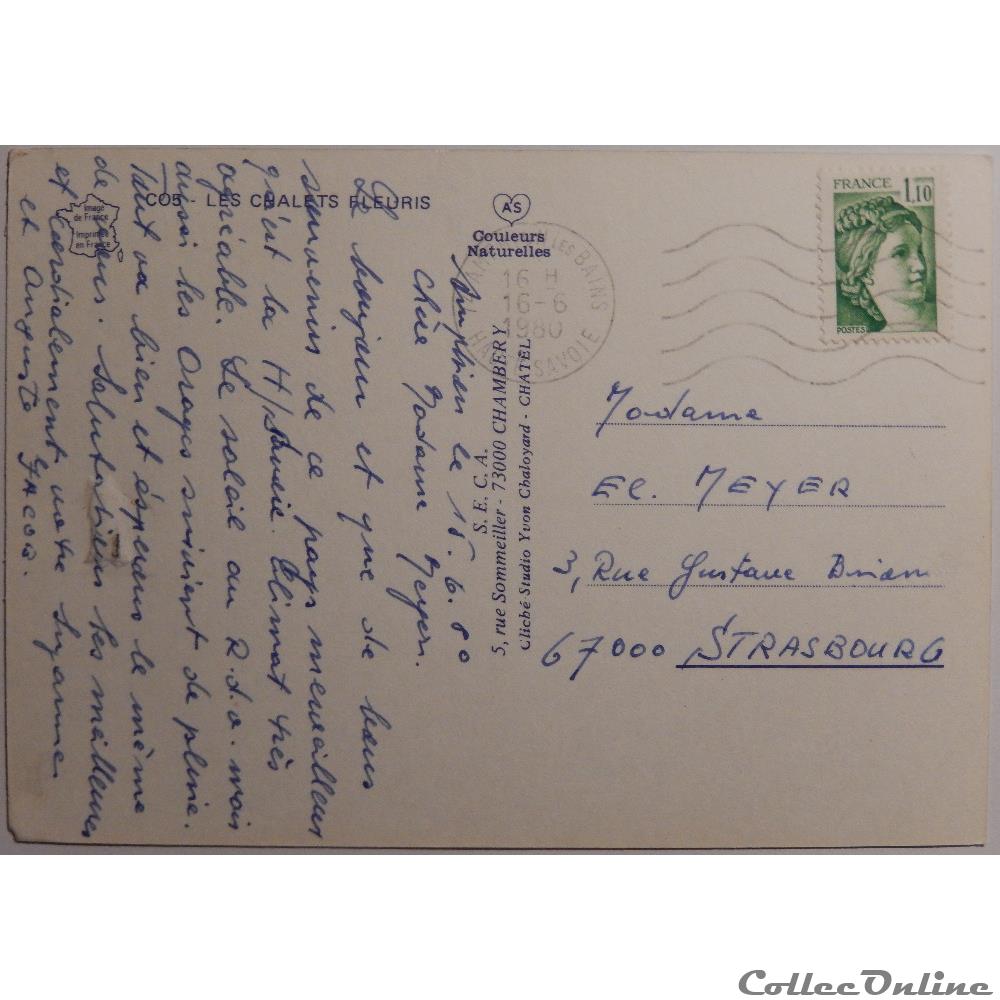 CO5 - LES CHALETS FLEURIS
Image
de France
Imprimée
en France
AS
Couleurs
Naturelles
LES BAINS
16 H
16-6
1980
HAUTE-SAVOIE
FRANCE
1,10
POSTES
S. E. C. A.
5, rue Sommeiller - 73000 CHAMBERY
Cliché Studio Yvon Chaloyard - CHATEL
le 15.6.80
Chère Madame Meyer.
Le bonjour et que de bons
souvenirs de ce pays merveilleux
qu'est la H/Savoie. Climat très
agréable. Le soleil au R.d.v. mais
aussi les Orages suivient de pluie.
Tout va bien et éspérons le même
de vous. Salutations les meilleures
et Cordialement votre Lyanne
et Auguste
Madame
El. MEYER
3, Rue Gustave Brion
67000 STRASBOURG
CollecOnline